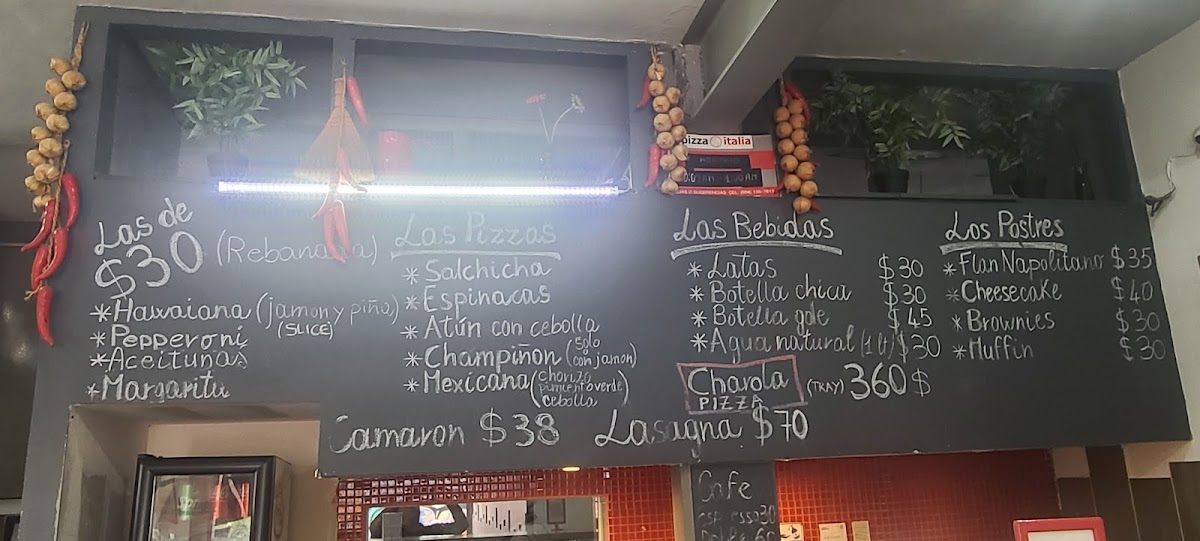 Las de
$30 (Rebanada)
*Hawaiana (jamon y piña)
(SLICE)
*Pepperoni
*Aceitunas
*Margarita
Las Pizzas
*Salchicha
*Espinacas
*Atún con cebolla
*Champiñon (solo o con jamon)
*Mexicana (chorizo pimiento verde cebolla)
Las Bebidas
*Latas $30
*Botella chica $30
*Botella gde $45
*Agua natural (1 lt) $30
Charola PIZZA (TRAY) 360$
Los Postres
*Flan Napolitano $35
*Cheesecake $40
*Brownies $30
*Muffin $30
Camaron $38 Lasagna $70
pizza italia
Cafe